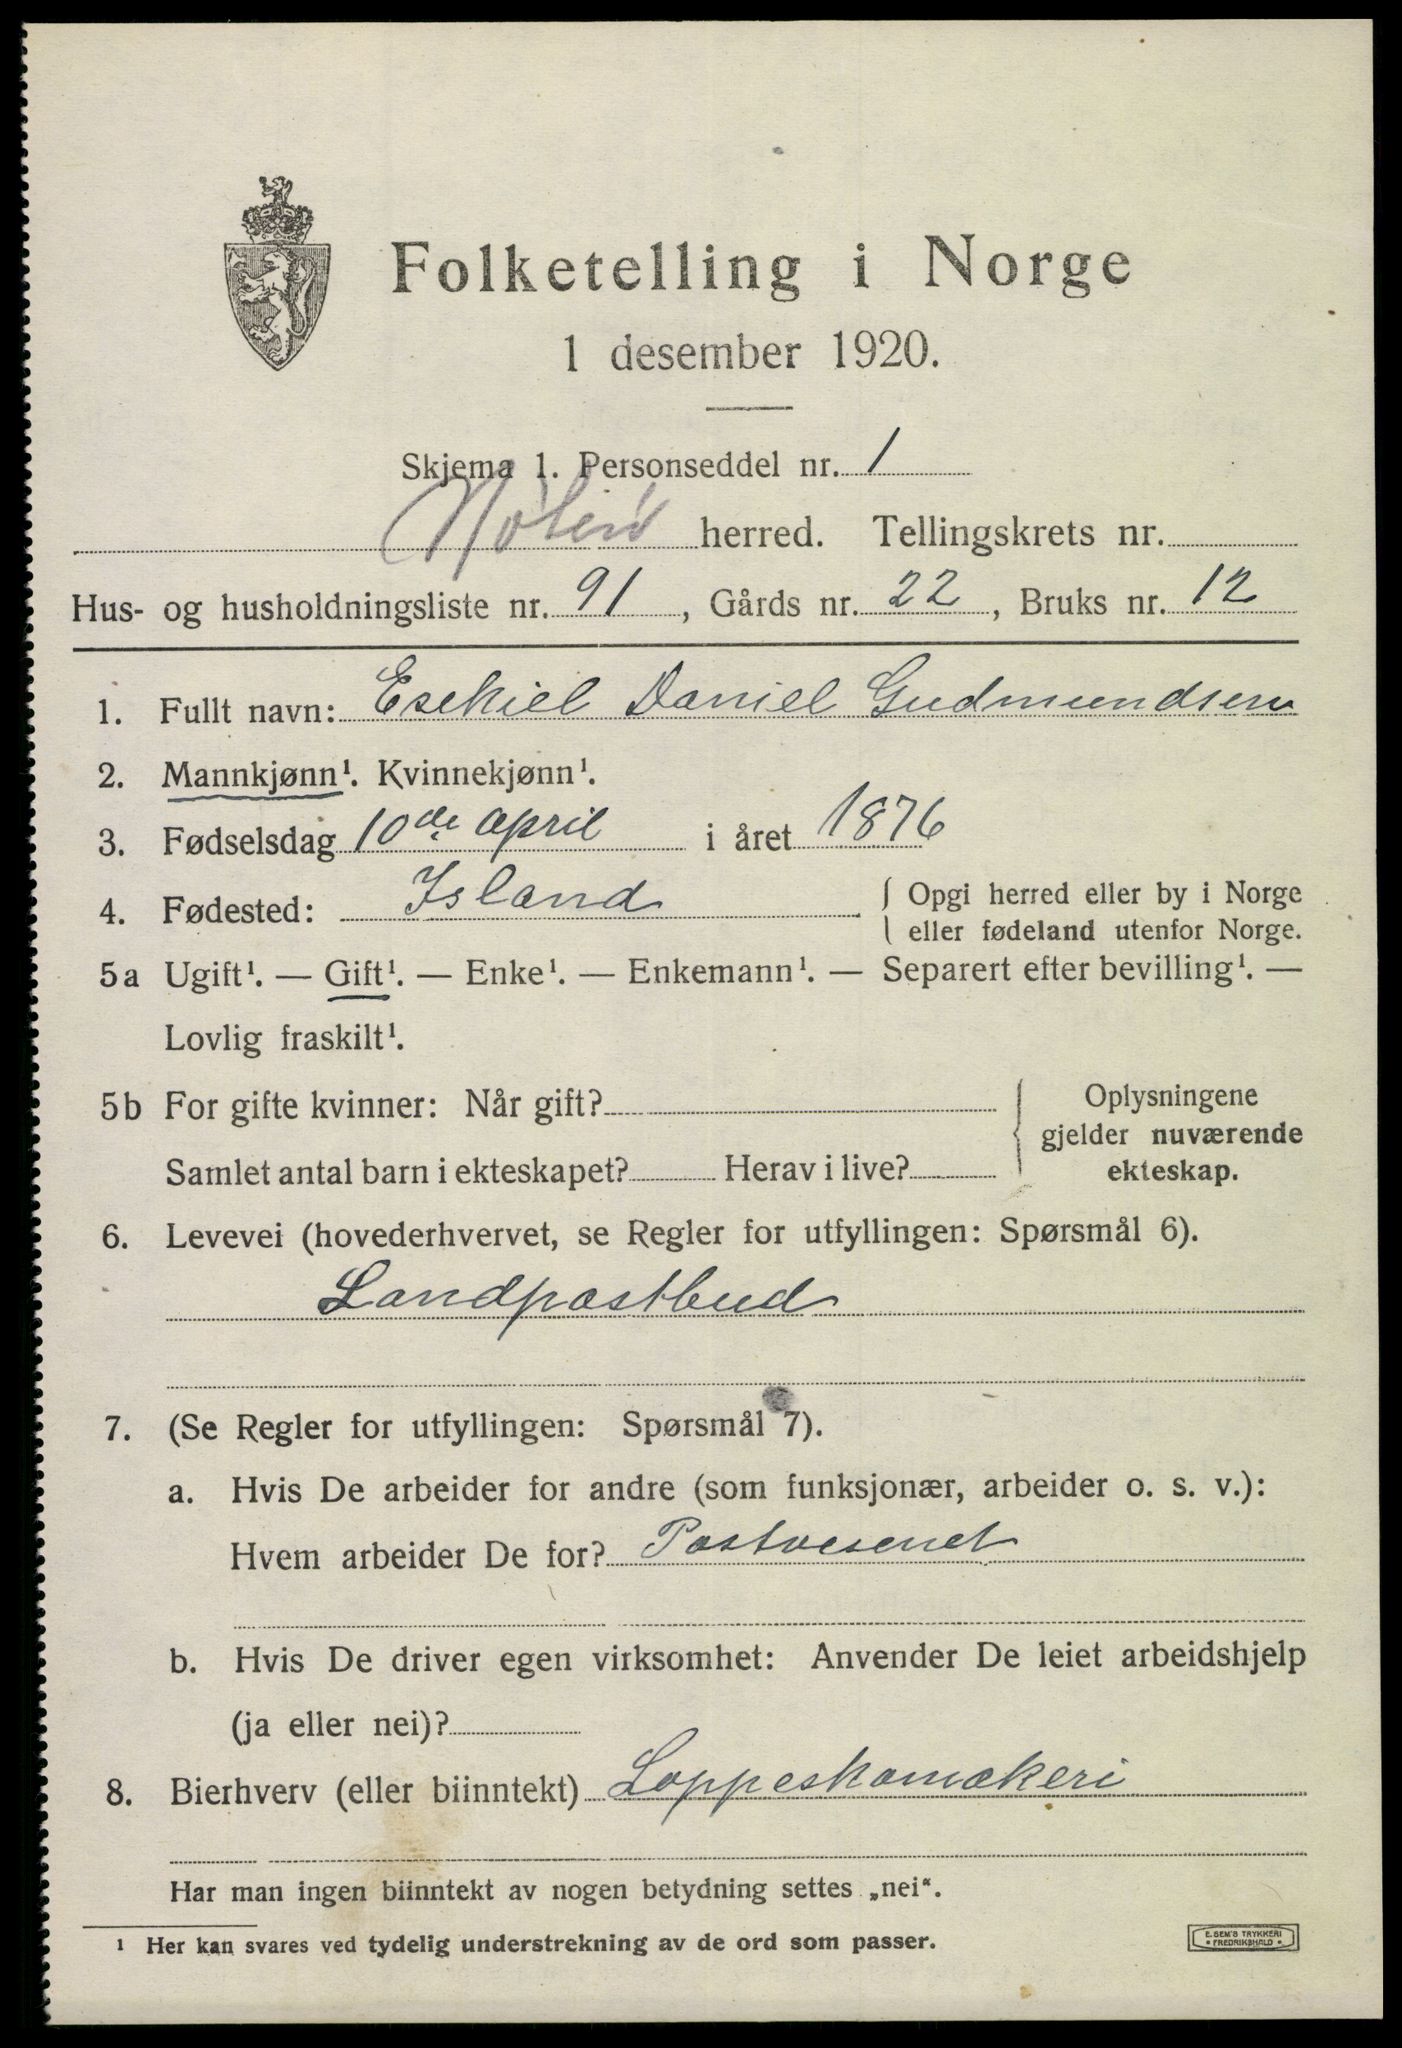 Folketelling i Norge
1 desember 1920.
Skjema 1. Personseddel nr. 1
Nøterø herred. Tellingskrets nr.
Hus- og husholdningsliste nr. 91, Gårds nr. 22, Bruks nr. 12
1. Fullt navn: Esekiel Daniel Gudmundsen
2. Mannkjønn¹. Kvinnekjønn¹.
3. Fødselsdag 10de april i året 1876
4. Fødested: Island { Opgi herred eller by i Norge
eller fødeland utenfor Norge.
5a Ugift¹. — Gift¹. — Enke¹. — Enkemann¹. — Separert efter bevilling¹. —
Lovlig fraskilt¹.
5b For gifte kvinner: Når gift?
Samlet antal barn i ekteskapet? Herav i live?
{ Oplysningene
gjelder nuværende
ekteskap.
6. Levevei (hovederhvervet, se Regler for utfyllingen: Spørsmål 6).
Landpostbud
7. (Se Regler for utfyllingen: Spørsmål 7).
a. Hvis De arbeider for andre (som funksjonær, arbeider o. s. v.):
Hvem arbeider De for? Postvesenet
b. Hvis De driver egen virksomhet: Anvender De leiet arbeidshjelp
(ja eller nei)?
8. Bierhverv (eller biinntekt) Lappeskomakeri
Har man ingen biinntekt av nogen betydning settes „nei“.
¹ Her kan svares ved tydelig understrekning av de ord som passer.
E. SEM'S TRYKKERI
• FREDRIKSHALD •